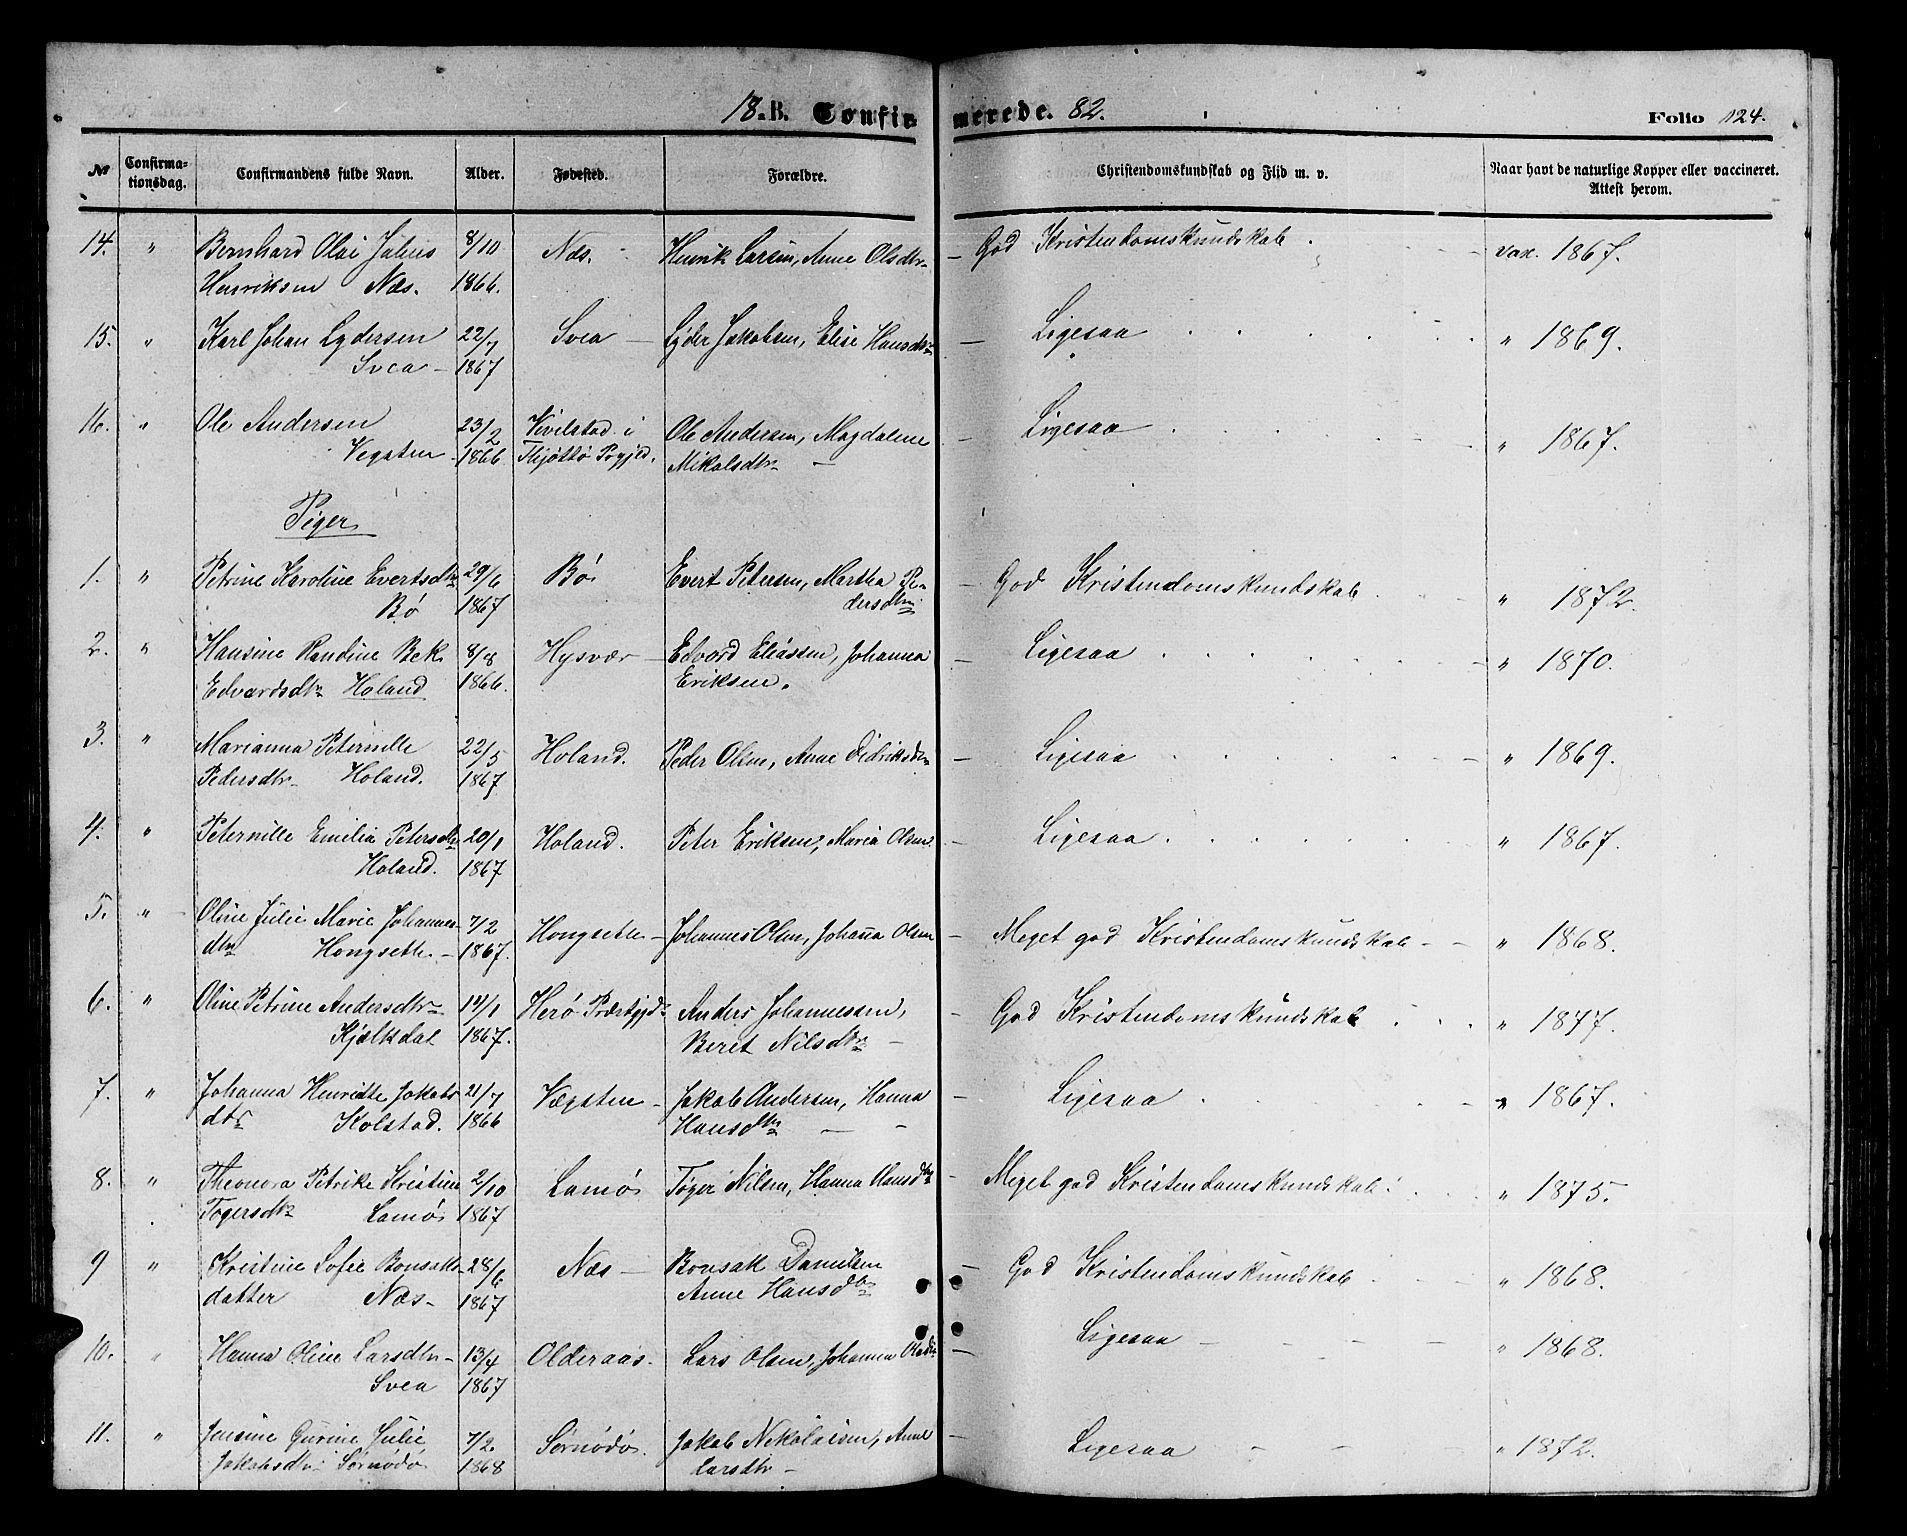 18.B. Confirmerede. 82. Folio 124.
No Confirmationsdag. Confirmandens fulde Navn. Alder. Fødested. Forældre. Christendomskundskab og Flid m. v. Naar havt de naturlige Kopper eller vaccineret. Attest herom.
14. " Bernhard Olai Julius 8/10 Næs. - Henrik Larsen, Anne Olsdtr - God Kristendomskundskab . - - vax. 1867.
Henriksen Næs. 1866.
15. " Karl Johan Lydersen 22/7 Svea - Lyder Jakobsen, Elise Hansdtr - Ligesaa " 1869.
Svea - 1867
16. " Ole Andersen 23/2 Vivilstad i Ole Andersen, Magdalene - Ligesaa " 1867.
Vegsten - 1866 Thjøttø Prgjld. Mikalsdtr -
Piger
1. " Petrine Karoline Evertsdtr 29/6 Bø Evert Petersen, Martha Pe- - God Kristendomskundskab " 1872.
Bø 1867 dersdtr.
2. " Hansine Randine Bek 8/8 Hysvær - Edvard Eliassen, Johanna - Ligesaa " 1870.
Edvardsdtr Holand 1866. Eriksen.
3. " Marianna Peternille 22/5 Holand. Peder Olsen, Anne Didriksdtr - Ligesaa " 1869.
Pedersdtr. Holand. 1867.
4. " Peternille Emilia Petersdtr 20/1 Holand. Peter Eriksen, Maria Olsen - Ligesaa " 1867.
Holand. 1867
5. " Oline Julie Marie Johannes- 7/2 Hongseth - Johannes Olsen, Johanna Olsen - Meget god Kristendomskundskab - - " 1868.
dtr Hongseth. - 1867.
6. " Oline Petrine Andersdtr 14/1 Herø Præstgjd. Anders Johannessen, - God Kristendomskundskab " 1877.
Kjælkdal 1867. Beret Nilsdtr -
7. " Johanna Henridte Jakobs- 21/7 Vægsten - Jakob Andersen, Hanna - Ligesaa " 1867.
dtr Kolstad. 1866 Hansdtr - -
8. " Theonora Petrike Kristine 2/10 Lamø Tøger Nilsen, Hanna Hansdtr - Meget god Kristendomskundskab. " 1875.
Tøgersdtr Lamø 1867
9 " Kristine Sofie Bonsak- 28/6 Næs - Bonsak Danielsen - God Kristendomskundskab " 1868.
datter Næs - 1867 Anne Hansdtr
10. " Hanna Oline Larsdtr - 13/4 Olderaas. Lars Olsen, Johanna Olsdtr - Ligesaa - " 1868.
Svea 1867
11. " Jensine Gurine Julie 7/2. Sørnødø. Jakob Nikolaisen, Anne - Ligesaa - " 1872.
Jakobsdtr Sørnødø 1868 Larsdtr -